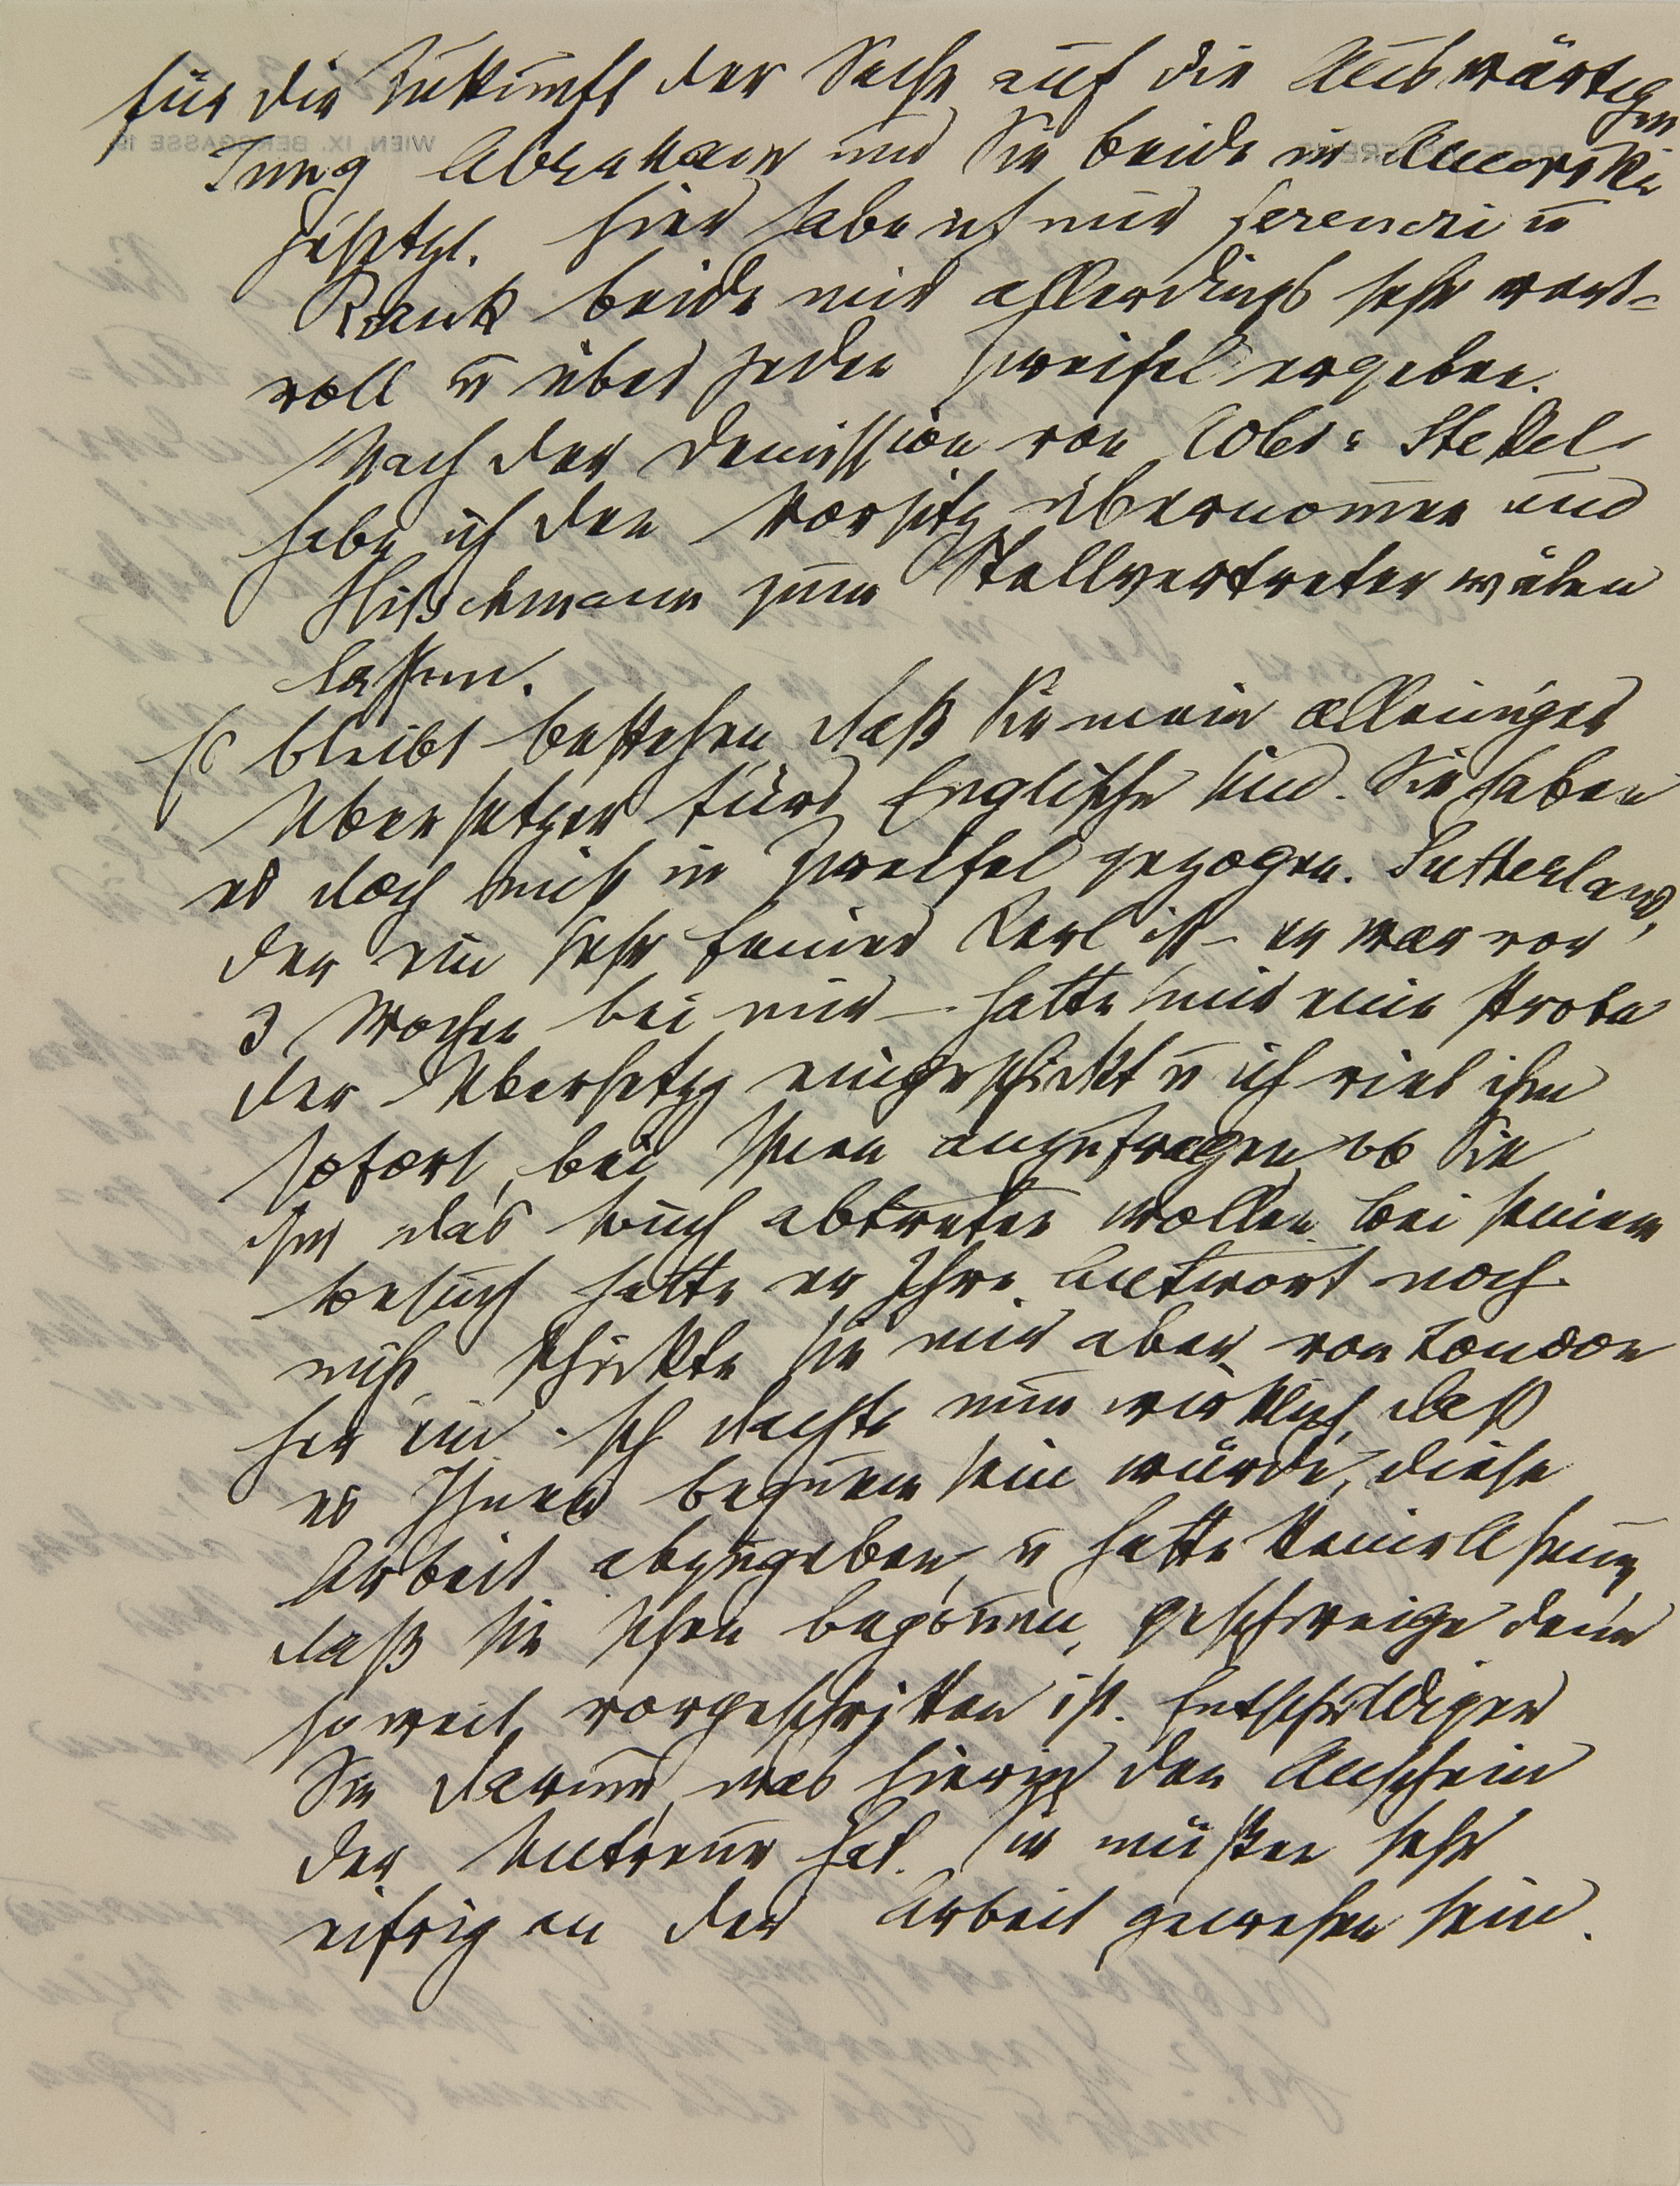 für die Zukunft der Sache auf die Auswärtigen
Jung Abraham und Sie beide in Amerika
gestützt. Hier habe ich nur Ferenczi u
Rank beide mir allerdings sehr wert-
voll u über jeden Zweifel ergeben.
Nach der Demission von Adler-Stekel
habe ich den Vorsitz übernom̅en und
Hitschmann zum Stellvertreter wälen
lassen.
Es bleibt bestehen, daß Sie mein alleiniger
Übersetzer fürs Englische sind. Sie haben
es doch nicht in Zweifel gezogen. Sutherland,
der ein sehr feiner Kerl ist – er war vor
3 Wochen bei mir – hatte mir eine Probe
der Übersetzg eingeschickt u ich riet ihm
sofort, bei Ihnen anzufragen, ob Sie
ihm das Buch abtreten wollen. Bei seinem
Besuch hatte er Ihre Antwort noch
nicht, schickte sie mir aber von London
her ein. Ich dachte nun wirklich, daß
es Ihnen bequem sein würde, diese
Arbeit abzugeben, u hatte keine Ahnung,
daß sie schon begon̅en, geschweige denn
so weit vorgeschritten ist. Entschuldigen
Sie darum, was hierin den Anschein
der Untreue hat. Sie müssen sehr
eifrig an der Arbeit gewesen sein.
WIEN, IX. BERGGASSE 19